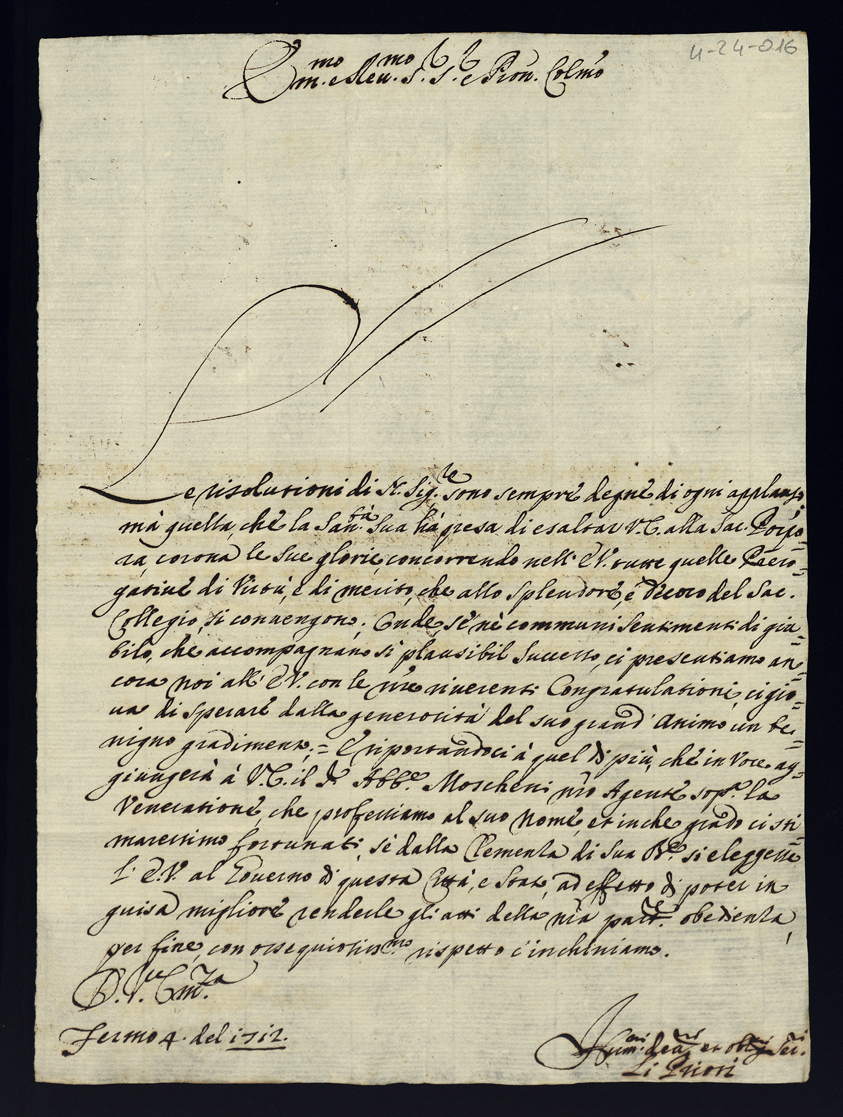 4-24-016
Em.mo e Reu.mo S. S. e Pron. Colmo
Le risolutioni di N. Sig.re sono sempre degne di ogni applauso,
mà quella, che la San.tà Sua hà presa di esaltar V. E. alla Sac. Porpo=
ra, corona le sue glorie, concorrendo nell' E.V. tutte quelle Prero=
gatiue di Virtù, e di merito, che allo splendore, e decoro del Sac.
Collegio, si conuengono. Onde, se ne' communi sentimenti di giu=
bilo, che accompagnano si plausibil successo, ci presentiamo an=
cora noi all' E.V. con le nre riuerenti Congratulationi, ci gio=
ua di sperare dalla generosità del suo grand' Animo un be=
nigno gradimento; = E riportandoci à quel di più, che in Voce ag=
giungerà à V. E. il Sr. Abb.e Moscheni nro Agente sop.a la
Veneratione, che professiamo al suo nome, et in che grado ci sti=
maressimo fortunati, se dalla Clemenza di Sua B.ne si eleggesse
l' E.V. al Gouerno di questa Città, e Stato, ad effetto di poter in
guisa migliore renderle gli atti della nra part.re obedienza,
per fine, con ossequiosiss.mo rispetto c'inchiniamo.
D. V.ra Em.za
Fermo 4. del 1712.
Hum.mi deu.mi et obl.mi Ser.i
Li Priori